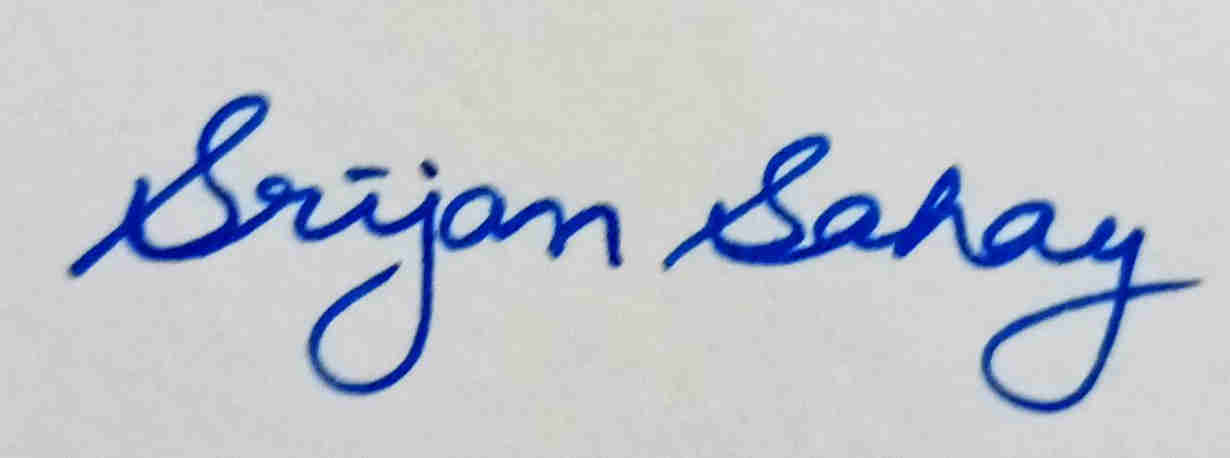 Srijan Sahay